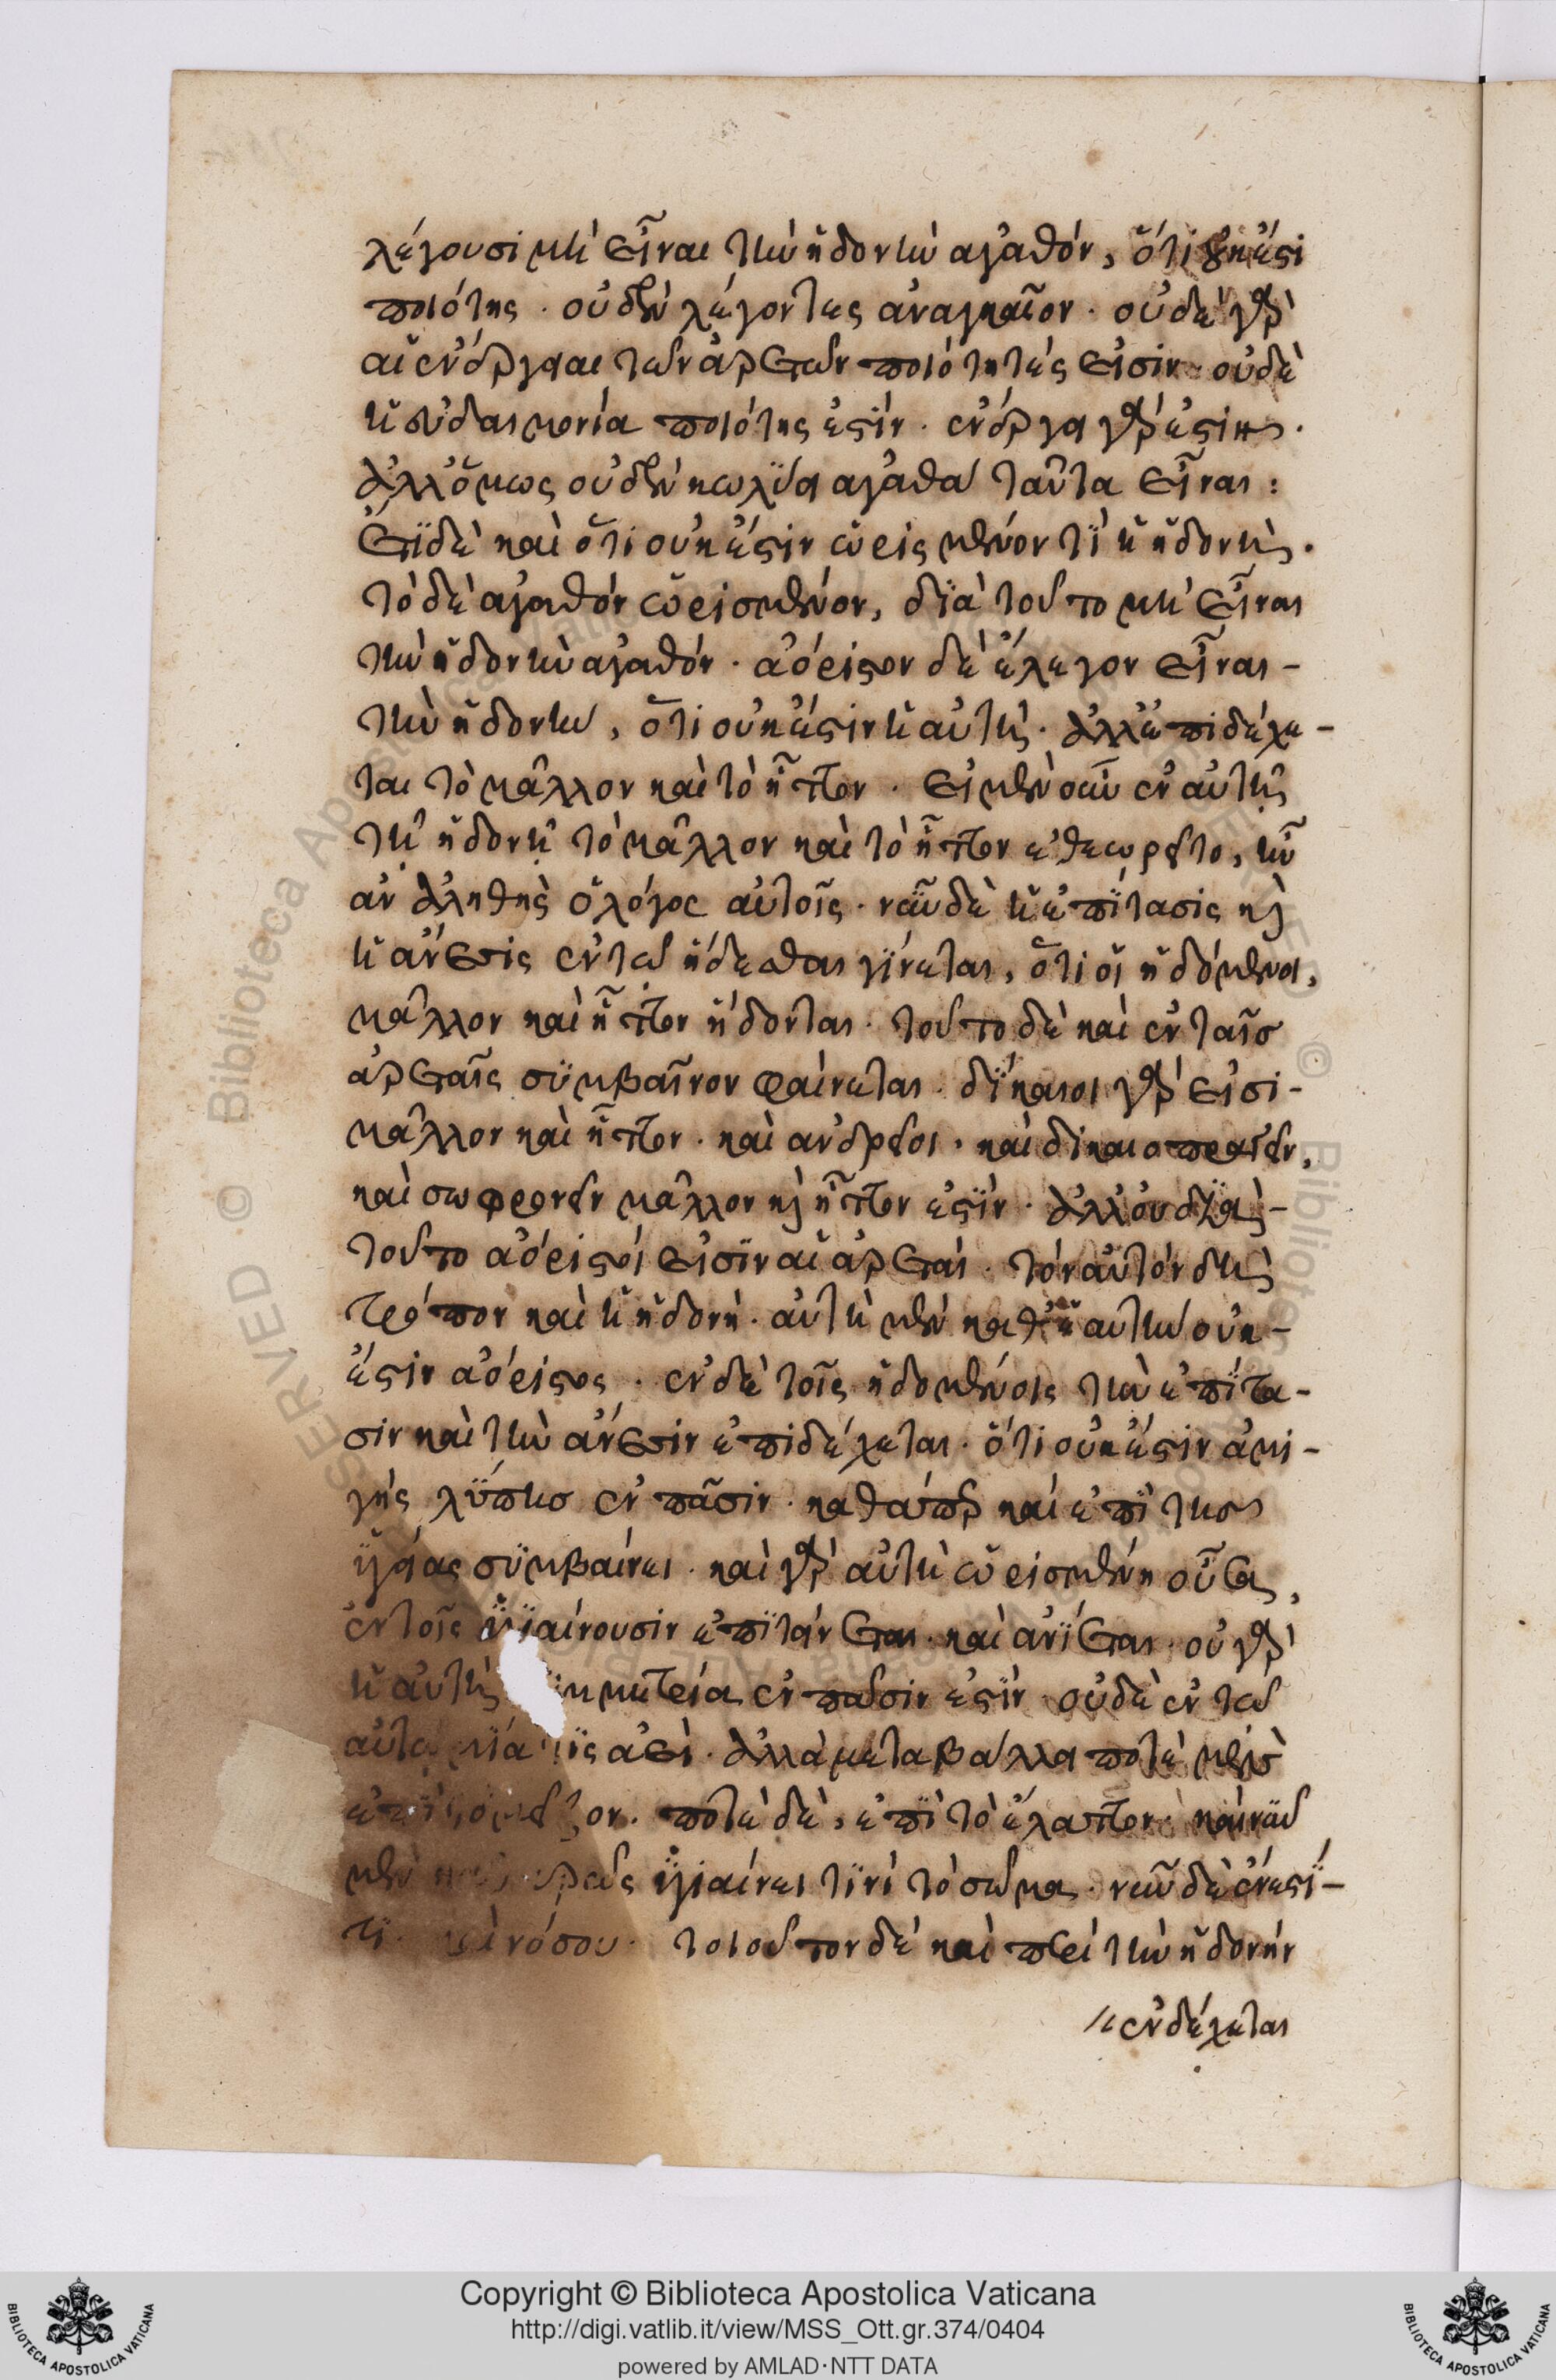 λέγουσι μὴ εἶναι τὴν ἡδονὴν ἀγαθόν, ὅτι οὐκ ἔστι
ποιότης · οὐδὲν λέγοντες ἀναγκαῖον · οὐδὲ γὰρ
αἱ ἐνέργειαι τῶν ἀρετῶν ποιότητές εἰσιν · οὐδὲ
ἡ εὐδαιμονία ποιότης ἐστίν · ἐνέργεια γάρ ἐστι ·
ἀλλ' ὅμως οὐδὲν κωλύει ἀγαθὰ ταῦτα εἶναι :
ἐτὶ δὲ καὶ ὅτι οὐκ ἔστιν ὡρισμένον τὶ ἡ ἡδονὴ ·
τὸ δὲ ἀγαθὸν ὡρισμένον, διὰ τοῦτο μὴ εἶναι
τὴν ἡδονὴν ἀγαθόν · ἀόριστον δὲ ἔλεγον εἶναι -
τὴν ἡδονὴν, ὅτι οὐκ ἔστιν ἡ αὐτὴ · ἀλλ' ἐπιδέχε -
ται τὸ μᾶλλον καὶ τὸ ἧττον · εἰ μὲν οὖν ἐν αὐτῇ
τῇ ἡδονῇ τὸ μᾶλλον καὶ τὸ ἧττον ἐθεωρεῖτο, ἦν
ἂν ἀληθὴς ὁ λόγος αὐτοῖς · νῦν δὲ ἡ ἐπίτασις καὶ
ἡ ἄνεσις ἐν τῷ ἥδεσθαι γίνεται, ὅτι οἱ ἡδόμενοι,
μᾶλλον καὶ ἧττον ἥδονται · τοῦτο δὲ καὶ ἐν ταῖς
ἀρεταῖς συμβαῖνον φαίνεται · δίκαιοι γάρ εἰσι -
μᾶλλον καὶ ἧττον · καὶ ἀνδρεῖοι · καὶ δικαιοπραγεῖν,
καὶ σωφρονεῖν μᾶλλον καὶ ἧττον ἐστίν · ἀλλ' οὐ διὰ -
τοῦτο ἀόριστοί εἰσιν αἱ ἀρεταί · τὸν αὐτὸν δὴ
τρόπον καὶ ἡ ἡδονή · αὐτὴ μὲν καθ' ἑαυτὴν οὐκ -
ἔστιν ἀόριστος · ἐν δὲ τοῖς ἡδομένοις τὴν ἐπίτα -
σιν καὶ τὴν ἄνεσιν ἐπιδέχεται · ὅτι οὐκ ἔστιν ἀμι -
γής λύπης ἐν πᾶσιν · καθάπερ καὶ ἐπὶ τῆς
ὑγείας συμβαίνει · καὶ γὰρ αὐτὴ ὡρισμένη οὖσα,
ἐν τοῖς ὑγιαίνουσιν ἐπιτείνεται · καὶ ἀνίεται · οὐ γὰρ
ἡ αὐτὴ μμετρία ἐν πᾶσιν ἐστὶν οὐδὲ ἐν τῷ
αὐτῷ μία τις ἀεὶ · ἀλλὰ μεταβάλλει ποτὲ μὲν
ἐπὶ τὸ μεῖζον · ποτὲ δὲ, ἐπὶ τὸ ἔλαττον · καὶ νῦν
μὲν ὑγιαίνει τινὶ τὸ σῶμα · νῦν δὲ ἔνεστί -
τι νόσου · τοιοῦτον δὲ καὶ περὶ τὴν ἡδονήν
ἐνδέχεται
Copyright © Biblioteca Apostolica Vaticana
http://digi.vatlib.it/view/MSS_Ott.gr.374/0404
powered by AMLAD·NTT DATA